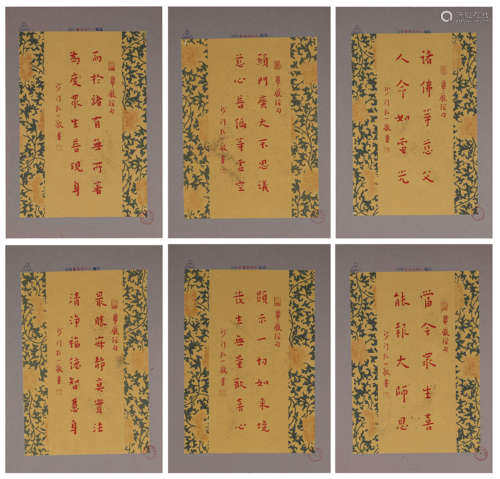 華嚴經句
而於諸有無所著
為度眾生普現身
沙門弘一敬書
華嚴經句
願門廣大不思議
慈心普徧等虛空
沙門弘一敬書
華嚴經句
諸佛等慈父
人命如電光
沙門弘一敬書
華嚴經句
最勝寂靜真實法
清淨福德智慧身
沙門弘一敬書
華嚴經句
顯示一切如來境
發生無量歡喜心
沙門弘一敬書
華嚴經句
當令眾生喜
能報大師恩
沙門弘一敬書